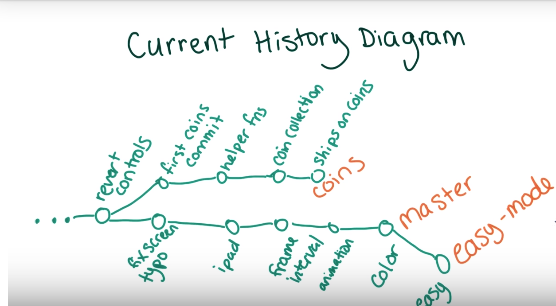 Current History Diagram
revert
controls
first coins
commit
helper fns
coin collection
ships on coins
coins
fix screen
typo
ipad
frame
interval
animation
color
master
easy
easy-mode